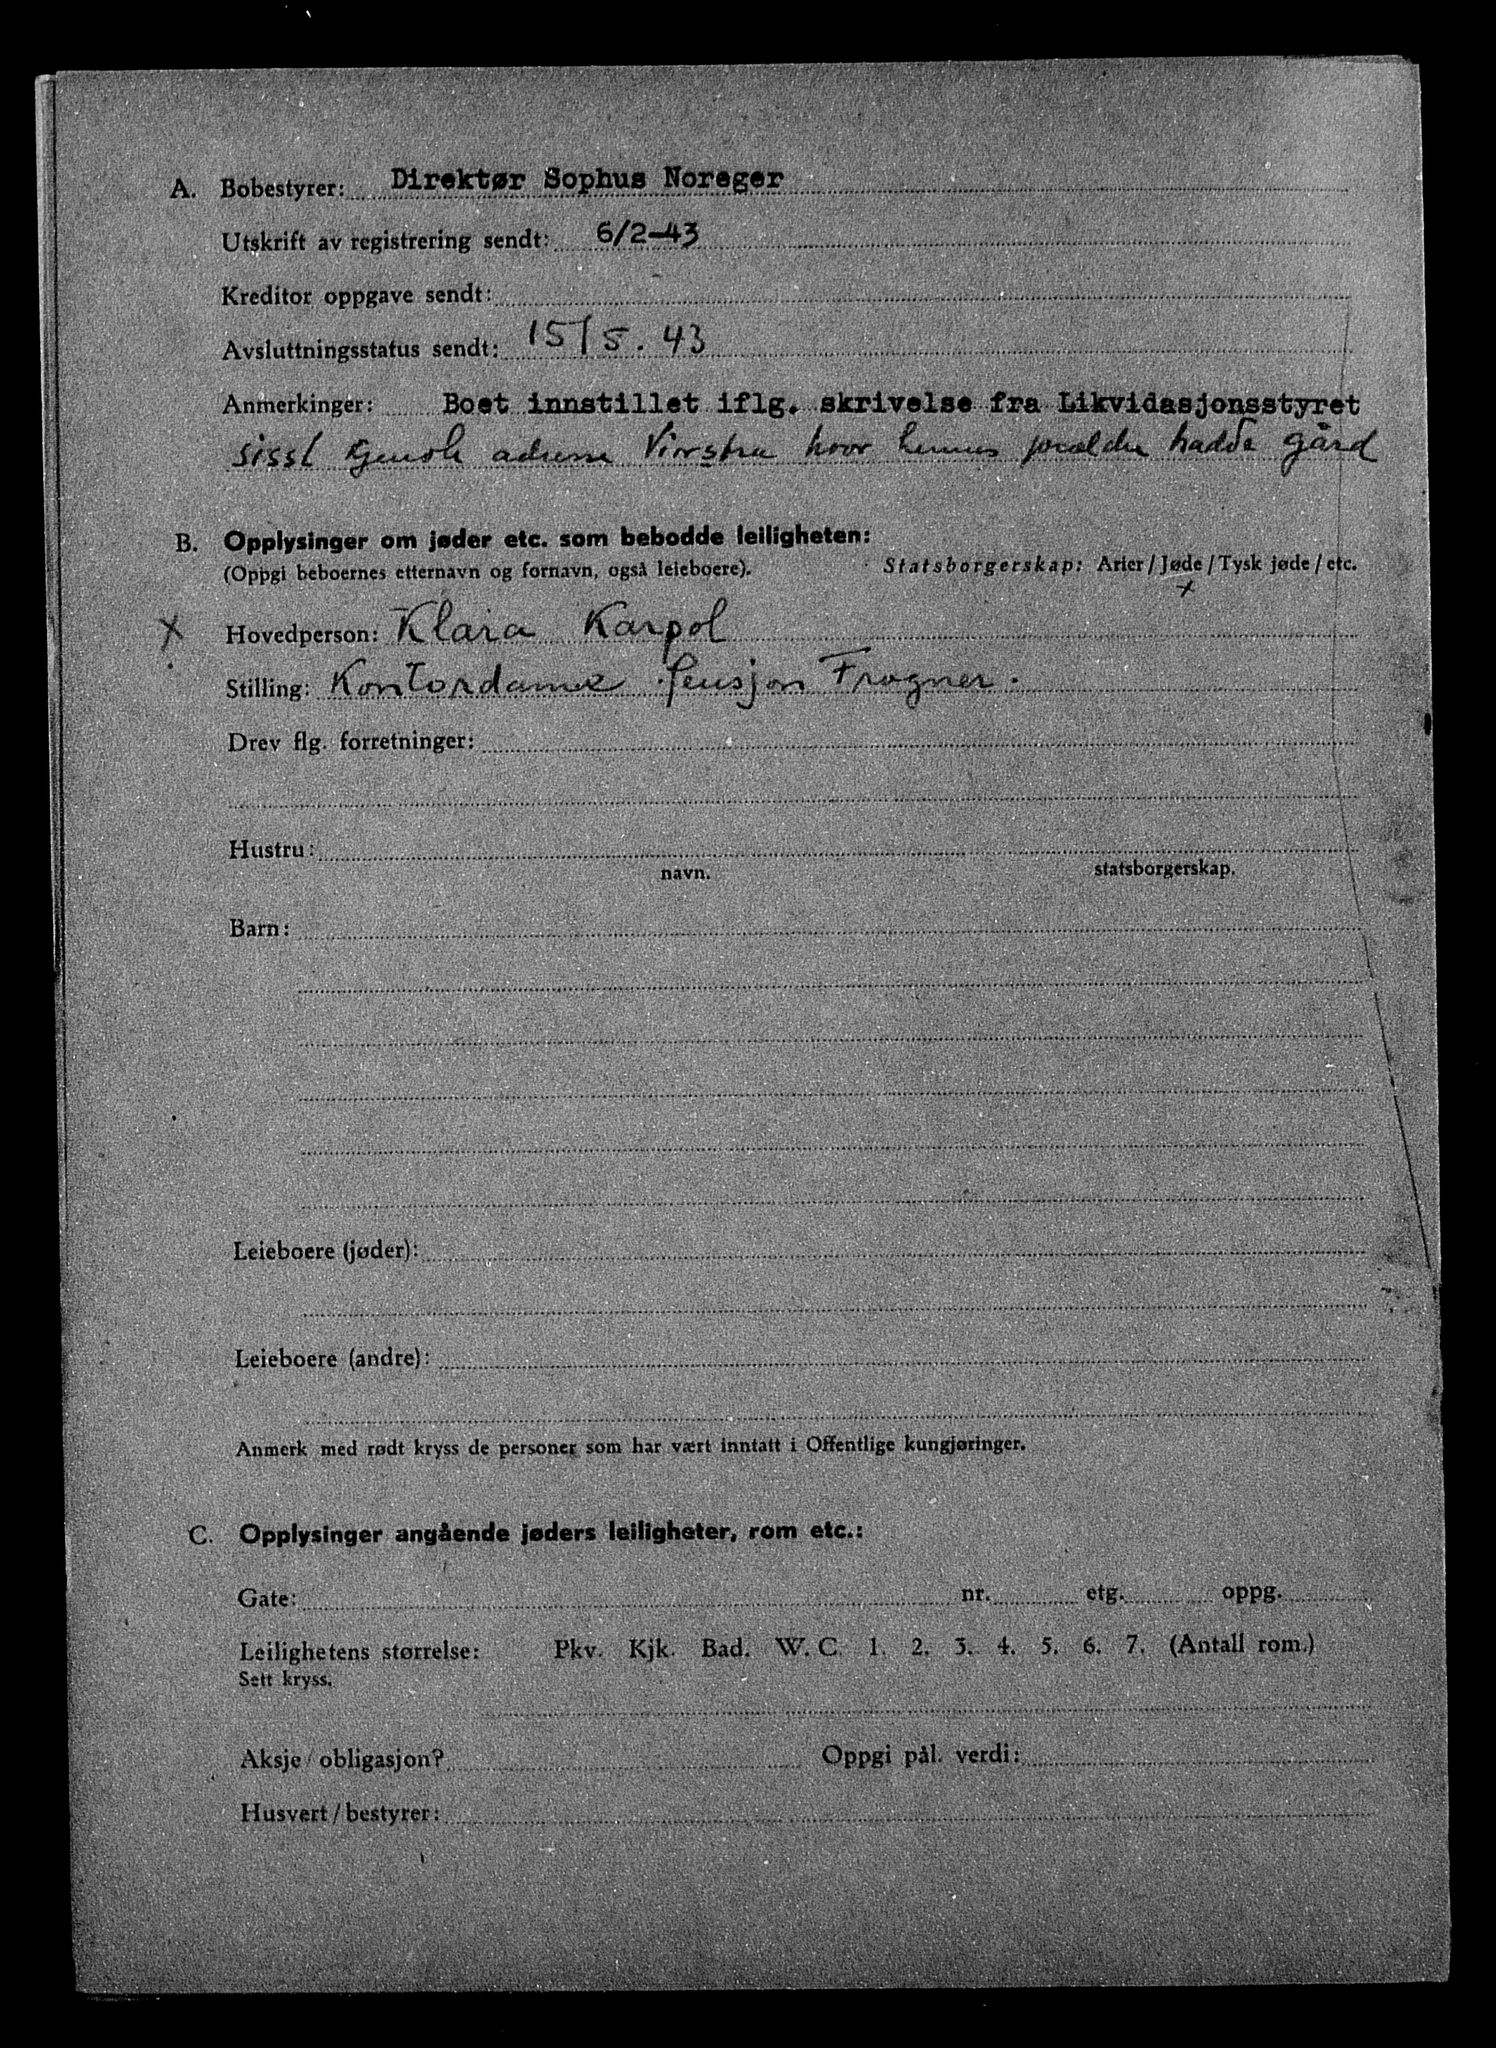 A. Bobestyrer: Direktør Sophus Noreger
Utskrift av registrering sendt: 6/2-43
Kreditor oppgave sendt:
Avsluttningsstatus sendt: 15/5.43
Anmerkinger: Boet innstillet iflg. skrivelse fra Likvidasjonsstyret
sisst kjendte adresse Vinstra hvor hennes forældre hadde gård
B. Opplysinger om jøder etc. som bebodde leiligheten:
(Oppgi beboernes etternavn og fornavn, også leieboere). Statsborgerskap: Arier / Jøde / Tysk jøde / etc.
x
x Hovedperson: Klara Karpol
Stilling: Kontordame Pensjon Frogner.
Drev flg. forretninger:
Hustru:
navn. statsborgerskap.
Barn:
Leieboere (jøder):
Leieboere (andre):
Anmerk med rødt kryss de personer som har vært inntatt i Offentlige kungjøringer.
C. Opplysinger angående jøders leiligheter, rom etc.:
Gate: nr. etg. oppg.
Leilighetens størrelse: Pkv. Kjk. Bad. W.C. 1. 2. 3. 4. 5. 6. 7. (Antall rom.)
Sett kryss.
Aksje / obligasjon? Oppgi pål. verdi:
Husvert / bestyrer: